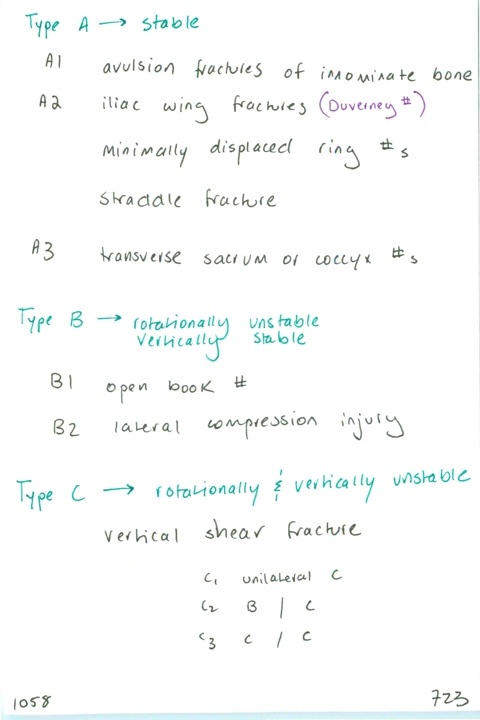 Type A → stable
A1 avulsion fractures of innominate bone
A2 iliac wing fractures (Duverney #)
minimally displaced ring #s
straddle fracture
A3 transverse sacrum or coccyx #s
Type B → rotationally unstable
vertically stable
B1 open book #
B2 lateral compression injury
Type C → rotationally & vertically unstable
vertical shear fracture
C1 unilateral C
C2 B / C
C3 C / C
1058 723